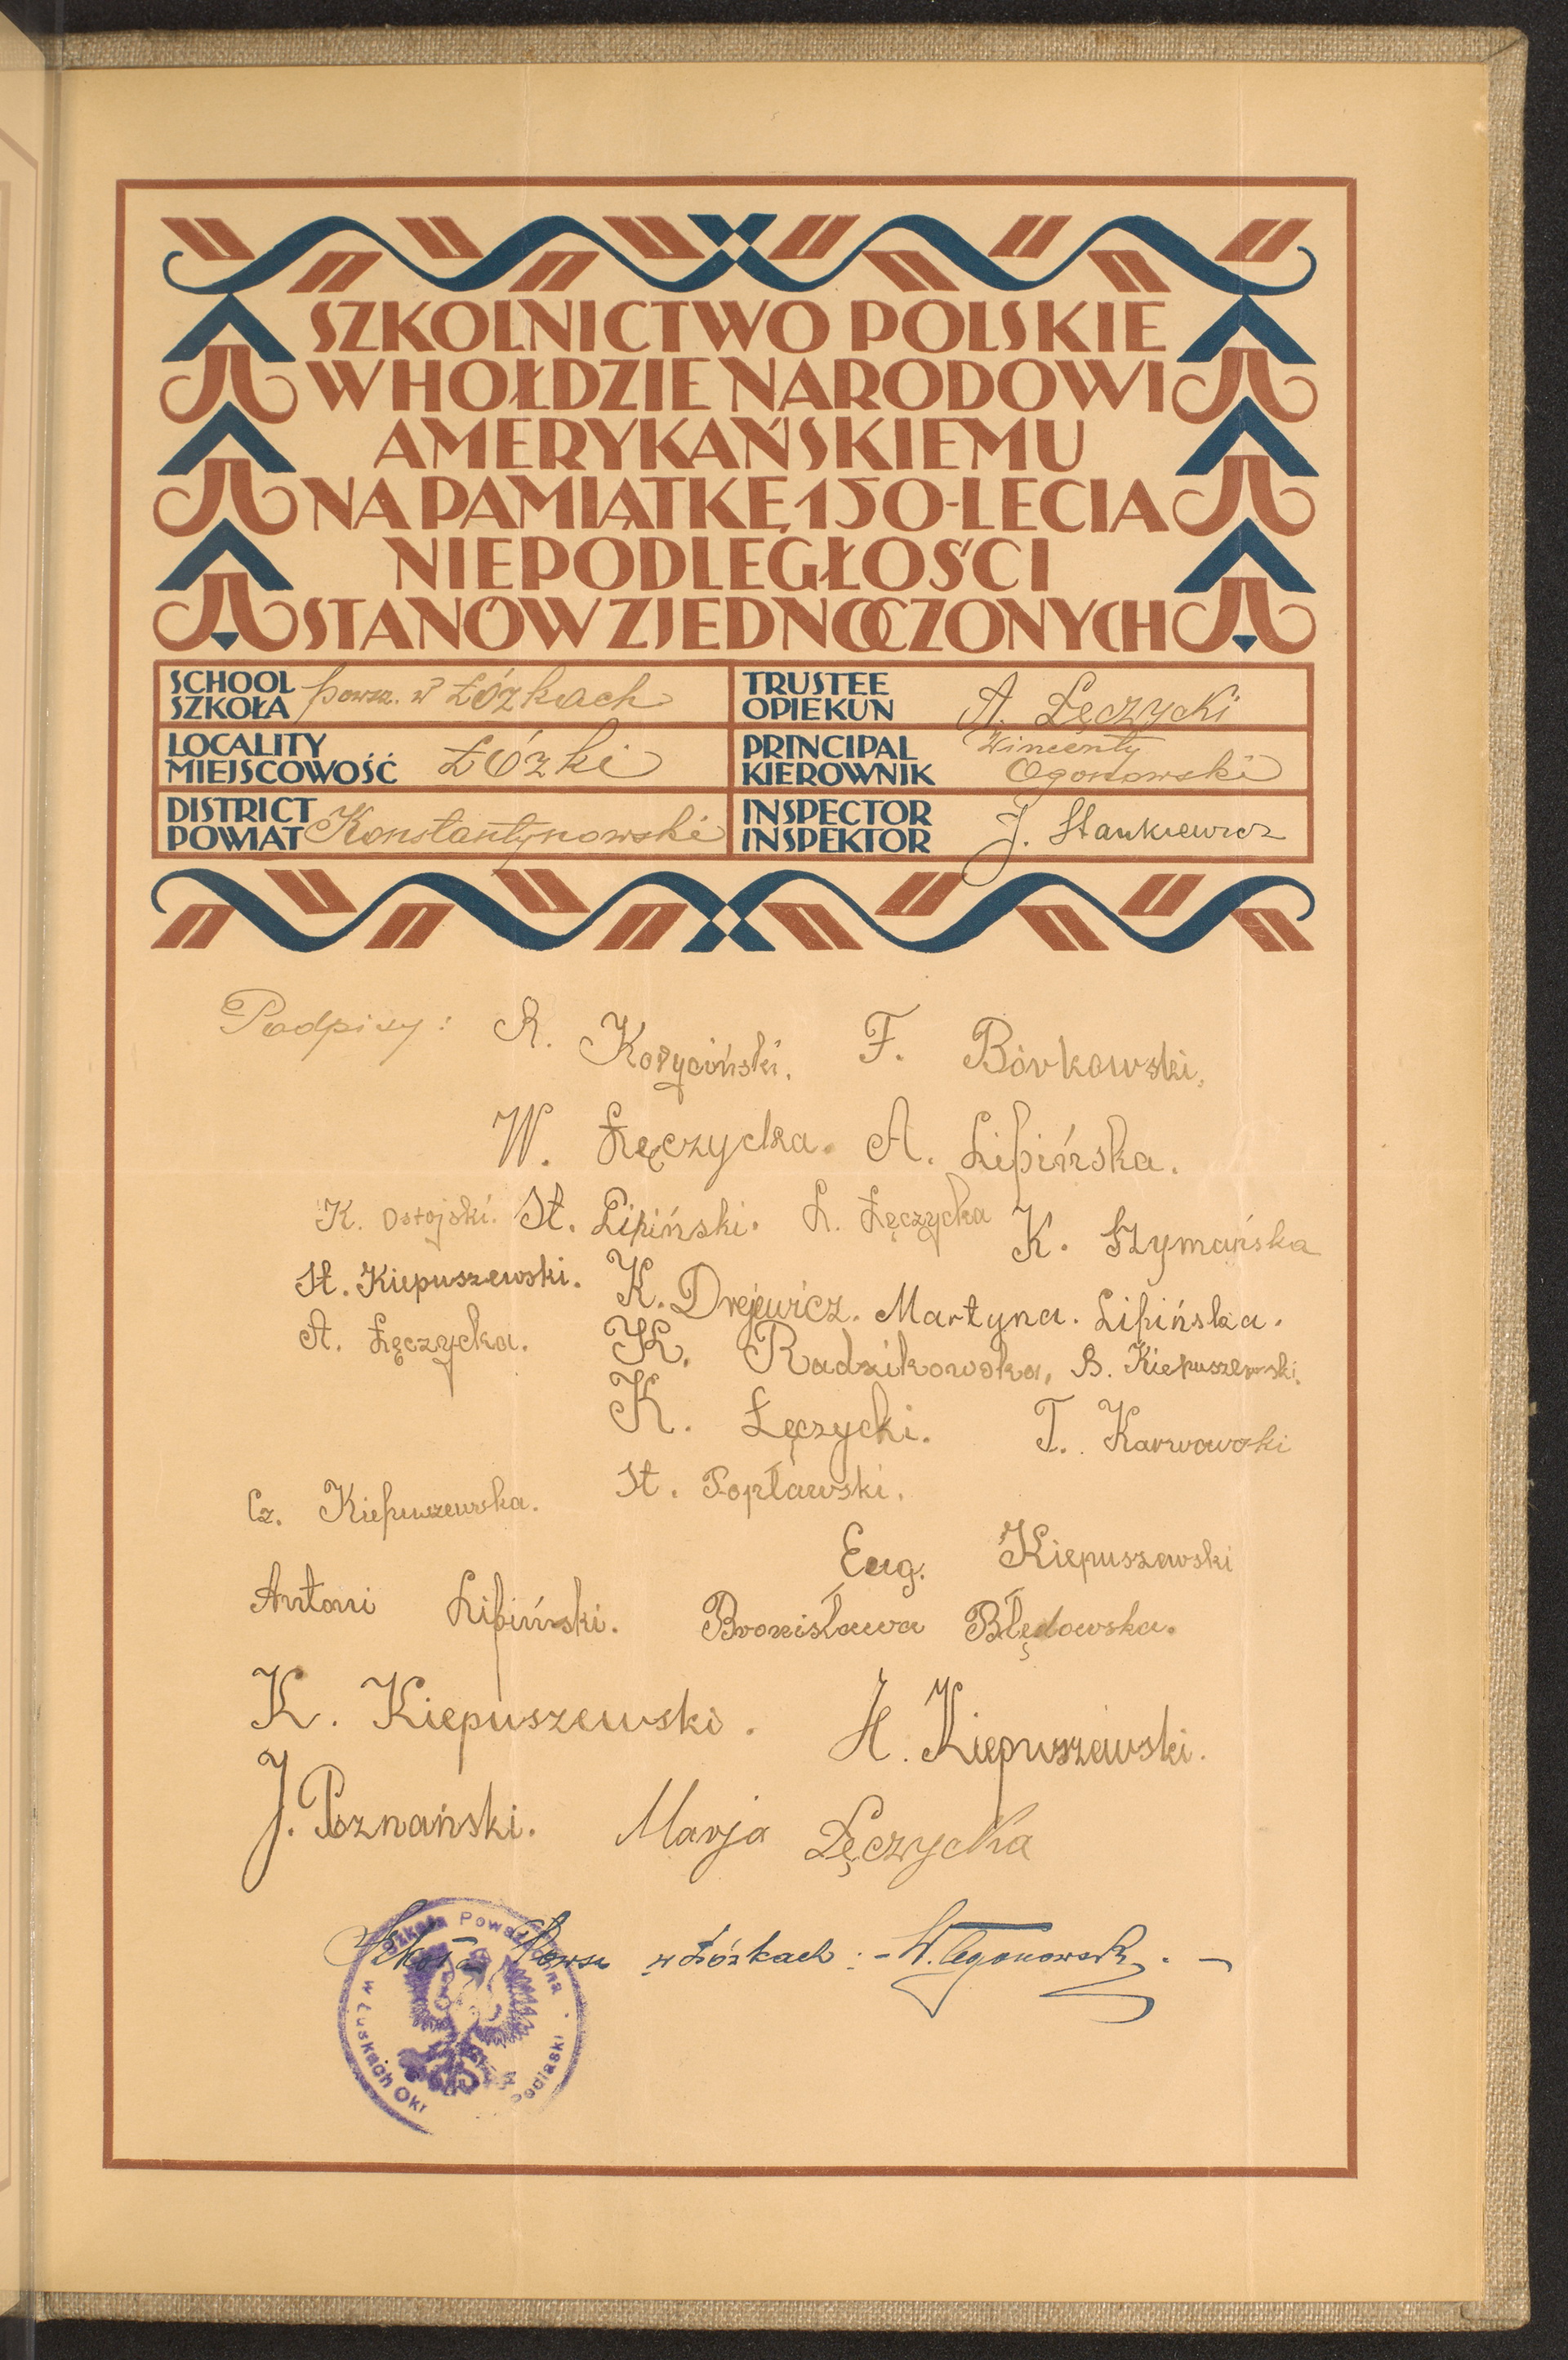 SZKOLNICTWO POLSKIE
W HOŁDZIE NARODOWI
AMERYKAŃSKIEMU
NA PAMIĄTKĘ 150-LECIA
NIEPODLEGŁOŚCI
STANÓW ZJEDNOCZONYCH
SCHOOL SZKOŁA powsz. w Łózkach
TRUSTEE OPIEKUN A. Łęczycki
LOCALITY MIEJSCOWOŚĆ Łózki
PRINCIPAL KIEROWNIK Wincenty Ogonowski
DISTRICT POWIAT Konstantynowski
INSPECTOR INSPEKTOR J. Stankiewicz
Podpisy: R. Koryciński. F. Borkowski,
W. Łęczycka. A. Lipińska.
K. Ostojski. St. Lipiński. L. Łęczycka K. Szymańska
St. Kiepuszewski. K. Drejewicz. Martyna. Lipińska.
A. Łęczycka. K. Radzikowska, B. Kiepuszewski.
K. Łęczycki. T. Karwowski
Cz. Kiepuszewska. St. Popławski.
Eug. Kiepuszewski
Antoni Lipiński. Bronisława Błędowska.
K. Kiepuszewski. H. Kiepuszewski.
J. Poznański. Marja Łęczycka
Szkoła Powsz w Łózkach: - W. Ogonowski. -
Szkoła Powszechna
w Łuskach Okr
Podlaski